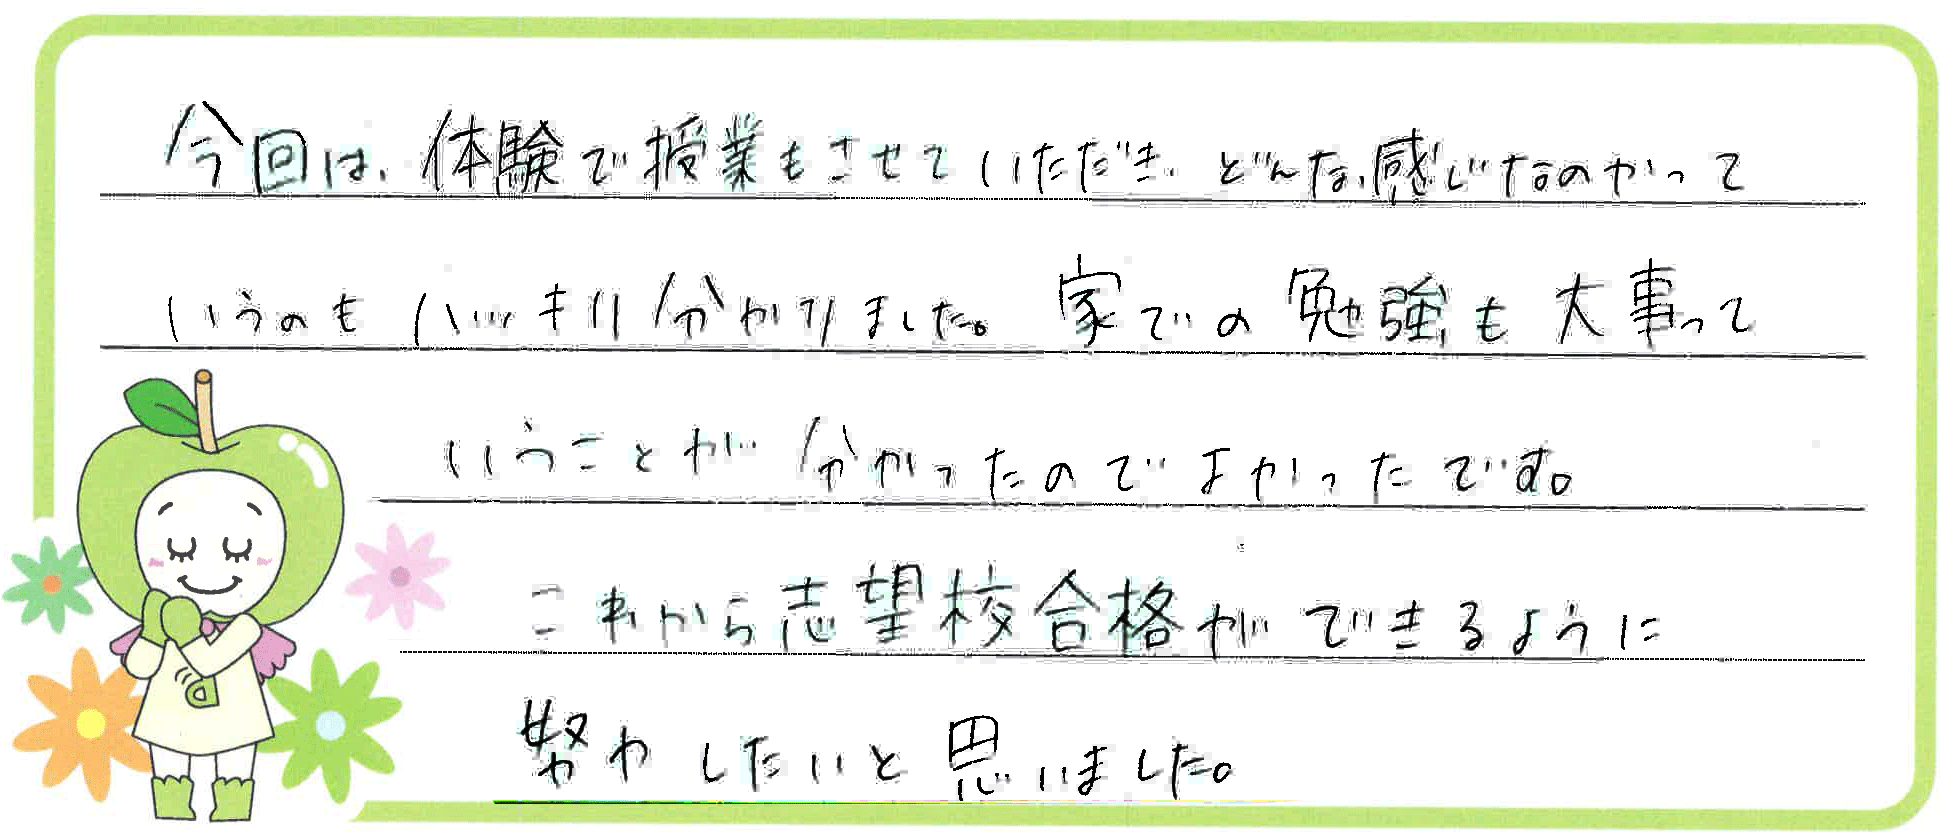 今回は、体験で授業もさせていただき、どんな感じなのかって
いうのもハッキリ分かりました。家での勉強も大事って
いうことが分かったのでよかったです。
これから志望校合格ができるように
努力したいと思いました。